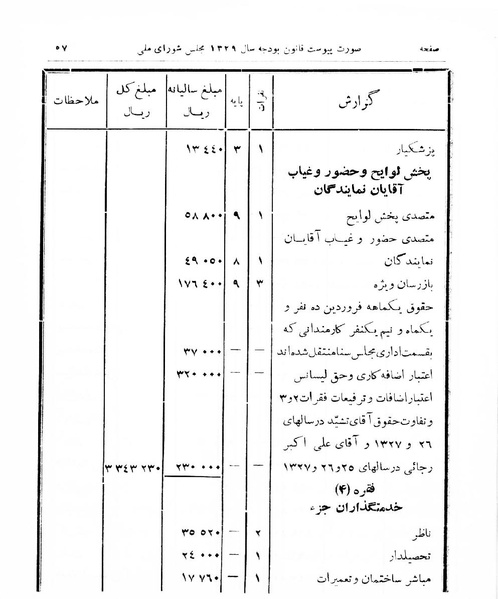 صفحه صورت پیوست قانون بودجه سال ۱۳۲۹ مجلس شورای ملی ۵۷
گزارش نفرات پایه مبلغ سالیانه ریال مبلغ کل ریال ملاحظات
پزشکیار ۱ ۳ ۱۳ ٤٤۰
پخش لوایح و حضور و غیاب
آقایان نمایندگان
متصدی پخش لوایح ۱ ۹ ۵۸ ۸۰۰
متصدی حضور و غیاب آقایان
نمایندگان ۱ ۸ ٤۹ ۰۵۰
بازرسان ویژه ۳ ۹ ۱۷۶ ٤۰۰
حقوق یکماهه فروردین ده نفر و
یکماه و نیم یکنفر کارمندانی که
بقسمت اداری مجلس سنا منتقل شده‌اند — — ۳۷ ۰۰۰
اعتبار اضافه کاری و حق لیسانس — — ۳۲۰ ۰۰۰
اعتبار اضافات و ترفیعات فقرات ۲ و ۳
و تفاوت حقوق آقای تشیّد در سالهای
۲۶ و ۱۳۲۷ و آقای علی اکبر
رجائی در سالهای ۲۵ و ۲۶ و ۱۳۲۷ — — ۲۳۰ ۰۰۰ ۳ ۳٤۳ ۲۳۰
فقره (٤)
خدمتگذاران جزء
ناظر ۲ — ۳۵ ۵۲۰
تحصیلدار ۱ — ۲٤ ۰۰۰
مباشر ساختمان و تعمیرات ۱ — ۱۷ ۷۶۰